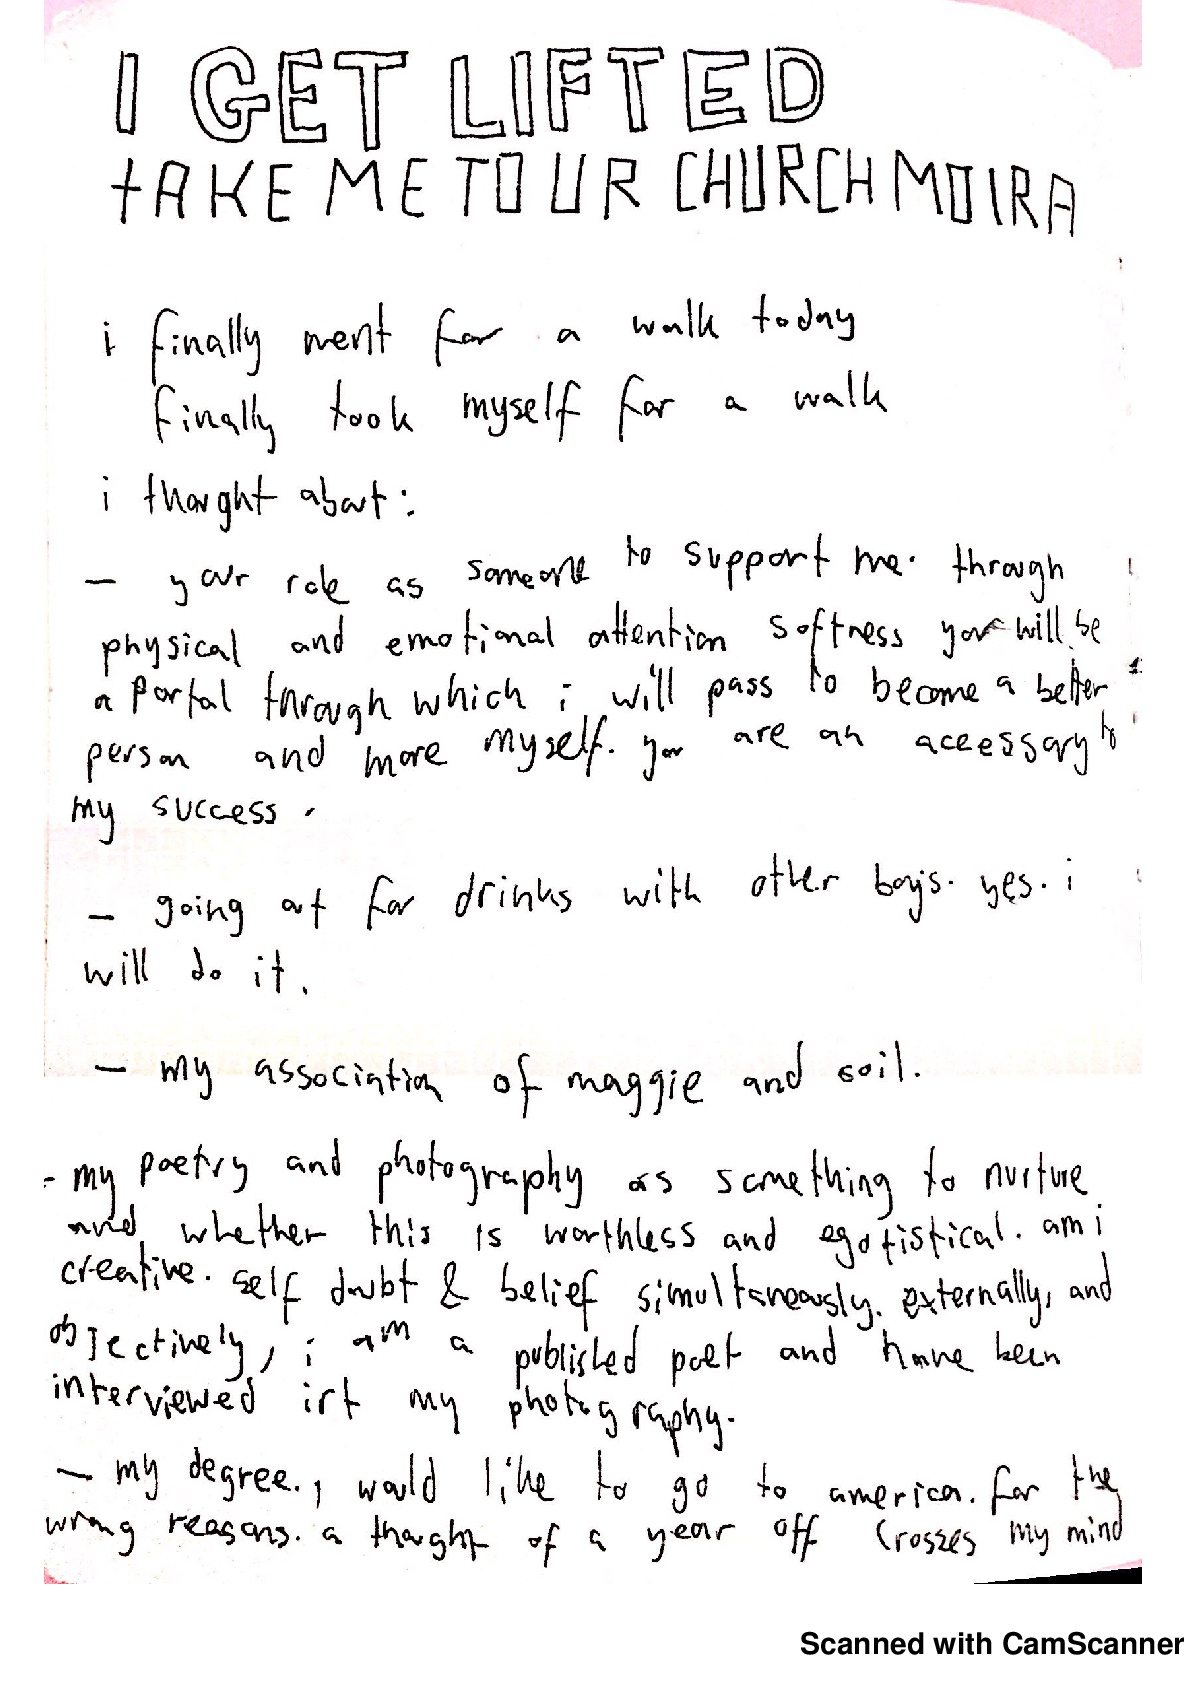 I GET LIFTED
tAKE ME TO UR CHURCH MOIRA
i finally went for a walk today
finally took myself for a walk
i thought about:
— your role as someone to support me. through
physical and emotional attention softness you will be
a portal through which i will pass to become a better
person and more myself. you are an acessary to
my success.
— going out for drinks with other boys. yes. i
will do it.
— my association of maggie and soil.
- my poetry and photography as something to nurture
and whether this is worthless and egotistical. am i
creative. self doubt & belief simultaneously. externally, and
objectively, i am a published poet and have been
interviewed irt my photography.
— my degree. i would like to go to america. for the
wrong reasons. a thought of a year off crosses my mind
Scanned with CamScanner